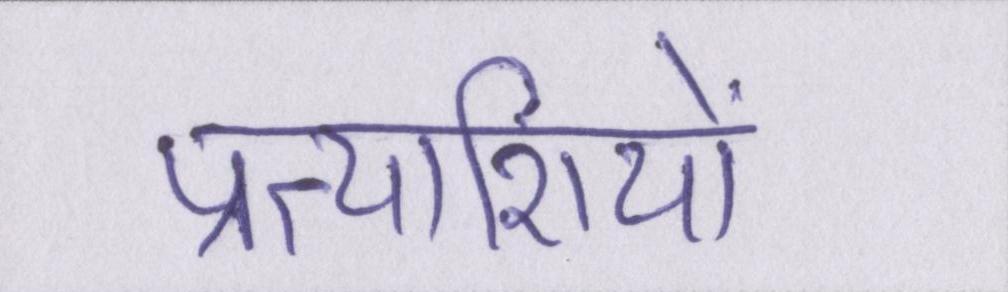 प्रत्याशियों